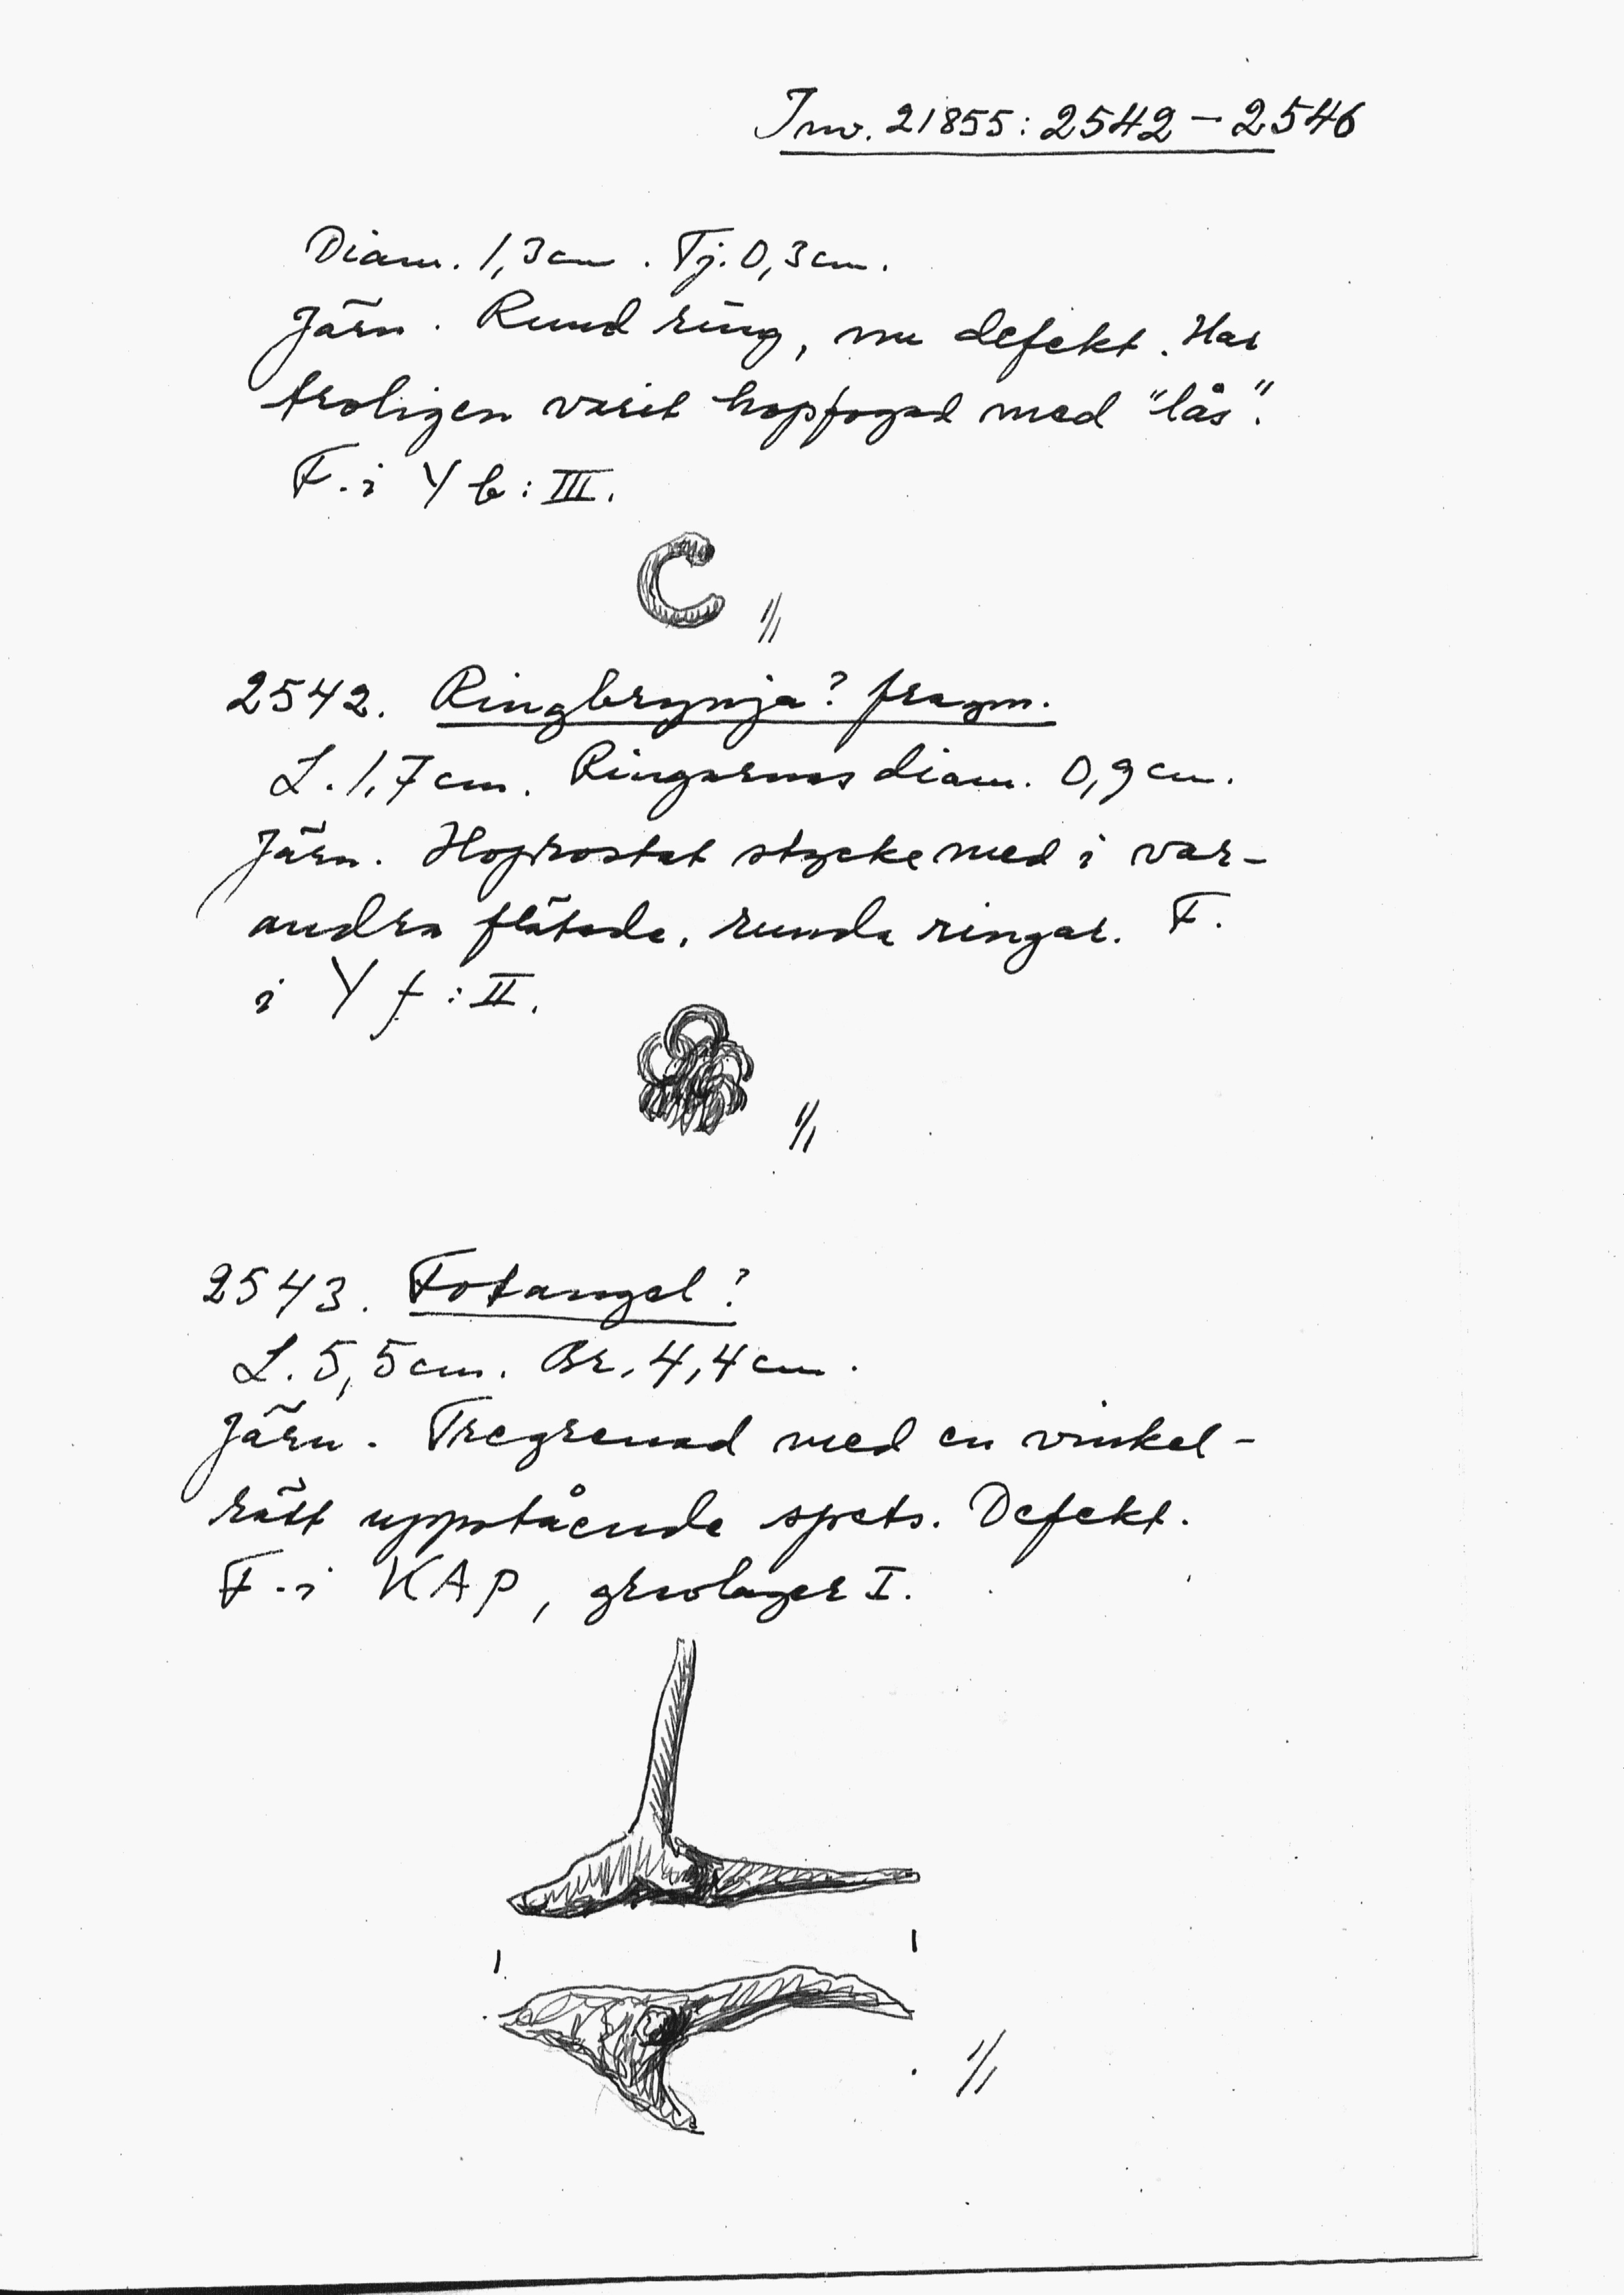 Inv. 21855: 2542 – 2546
Diam. 1,3 cm. Tj. 0,3 cm.
Järn. Rund ring, nu defekt. Har
troligen varit hopfogad med "lås".
F. i Y b : III.
1/1
2542. Ringbrynja? fragm.
L. 1,7 cm. Ringarnas diam. 0,9 cm.
Järn. Hoprostat stycke med i var-
andra flätade, runda ringar. F.
i Y f : II.
1/1
2543. Fotangel?
L. 5,5 cm. Br. 4,4 cm.
Järn. Tregrenad med en vinkel-
rätt uppstående spets. Defekt.
F. i KAP, gruslager I.
1/1